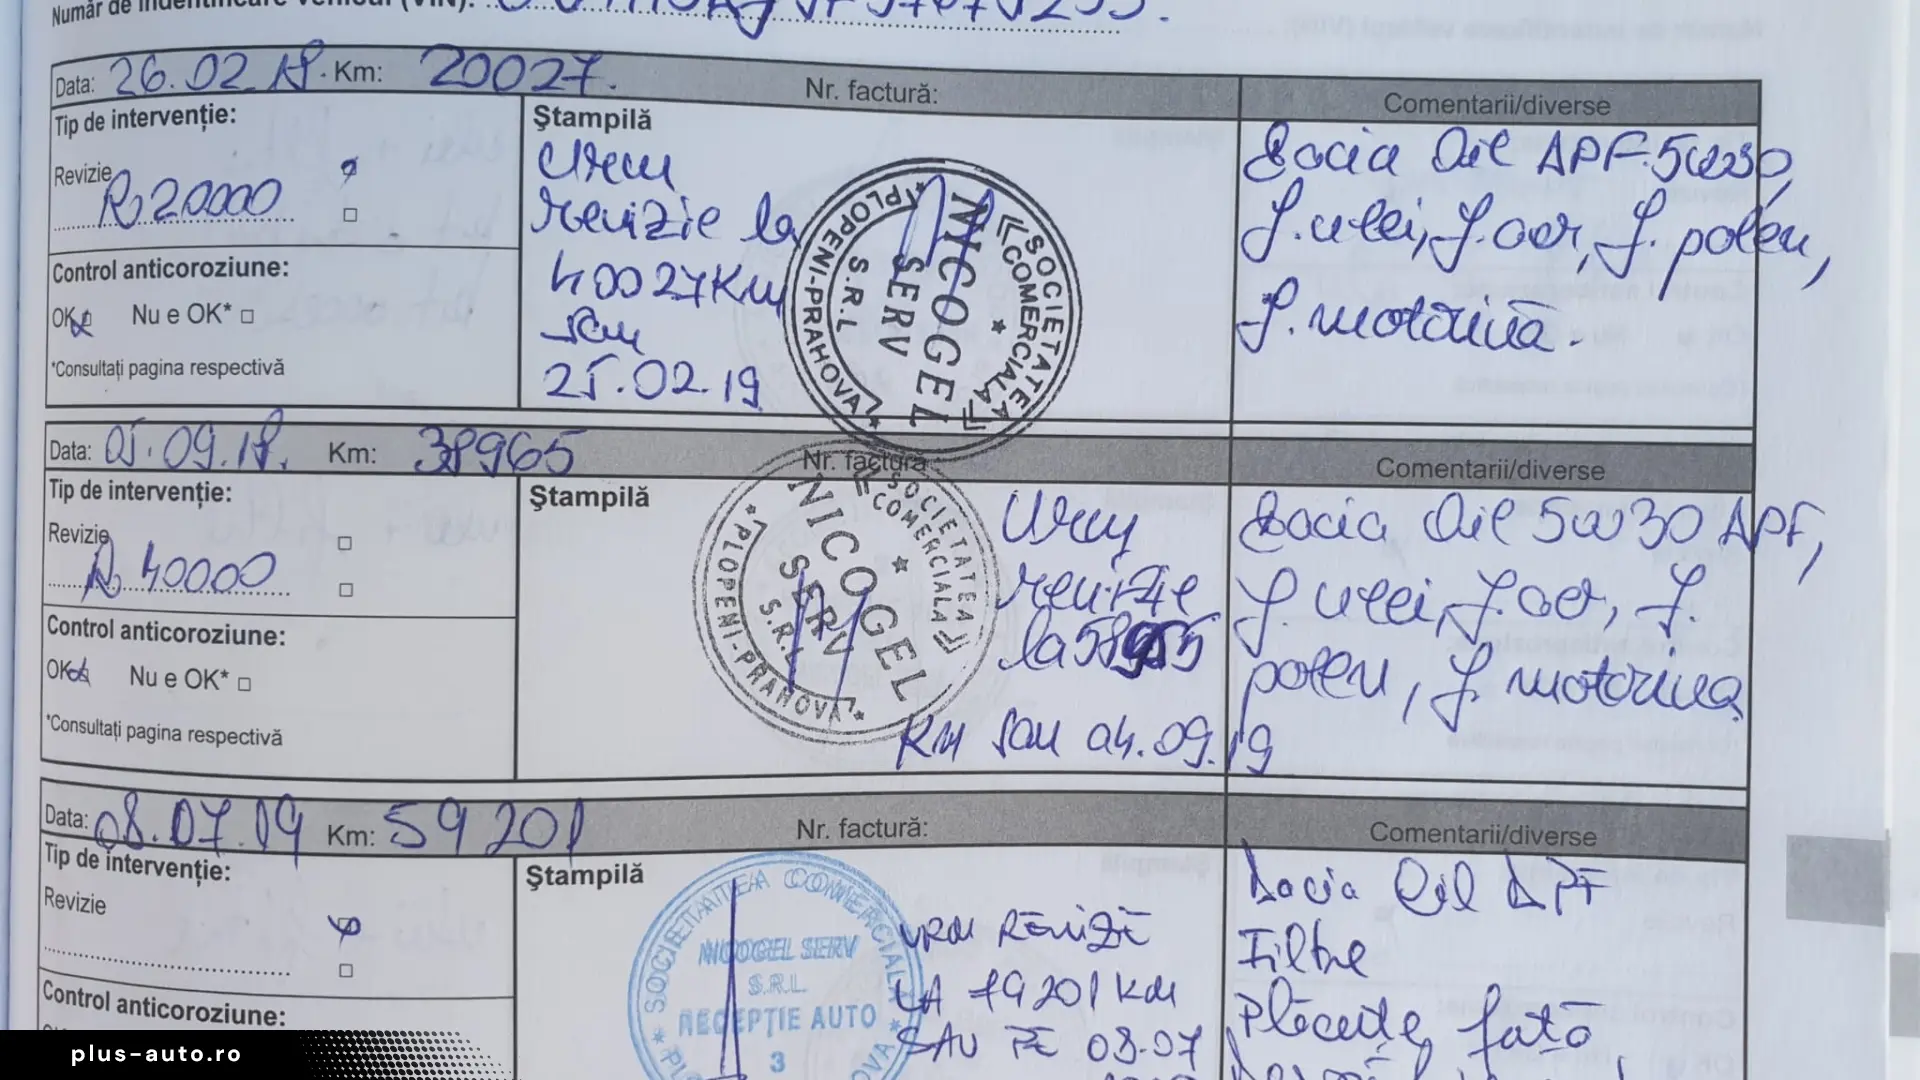 Număr de indentificare vehicul (VIN):
Data: 26.02.18. Km: 20027. Nr. factură: Comentarii/diverse
Tip de intervenție:
Revizie
R 20000
Control anticoroziune:
OK Nu e OK*
*Consultați pagina respectivă
Ștampilă
Urm
revizie la
40027Km
sau
25.02.19
SOCIETATEA COMERCIALĂ
NICOGEL
SERV
S.R.L
PLOPENI-PRAHOVA
Dacia Oil APF.5w30,
f.ulei, f.aer, f. polen,
f. motorină.
Data: 05.09.18. Km: 38965 Nr. factură Comentarii/diverse
Tip de intervenție:
Revizie
R 40000
Control anticoroziune:
OK Nu e OK*
*Consultați pagina respectivă
Ștampilă
SOCIETATEA COMERCIALĂ
NICOGEL
SERV
S.R.L
PLOPENI-PRAHOVA
Urm
revizie
la
Km sau 04.09.19
Dacia Oil 5w30 APF,
f. ulei, f. aer, f.
polen, f. motorina
Data: 08.07.19 Km: 59201 Nr. factură: Comentarii/diverse
Tip de intervenție:
Revizie
Control anticoroziune:
Ștampilă
SOCIETATEA COMERCIALĂ
NICOGEL SERV
S.R.L.
RECEPȚIE AUTO
3
URM REVIZIE
LA 79201 KM
SAU PE 08.07
Dacia Oil APF
Filtre
Plăcuțe față
plus-auto.ro